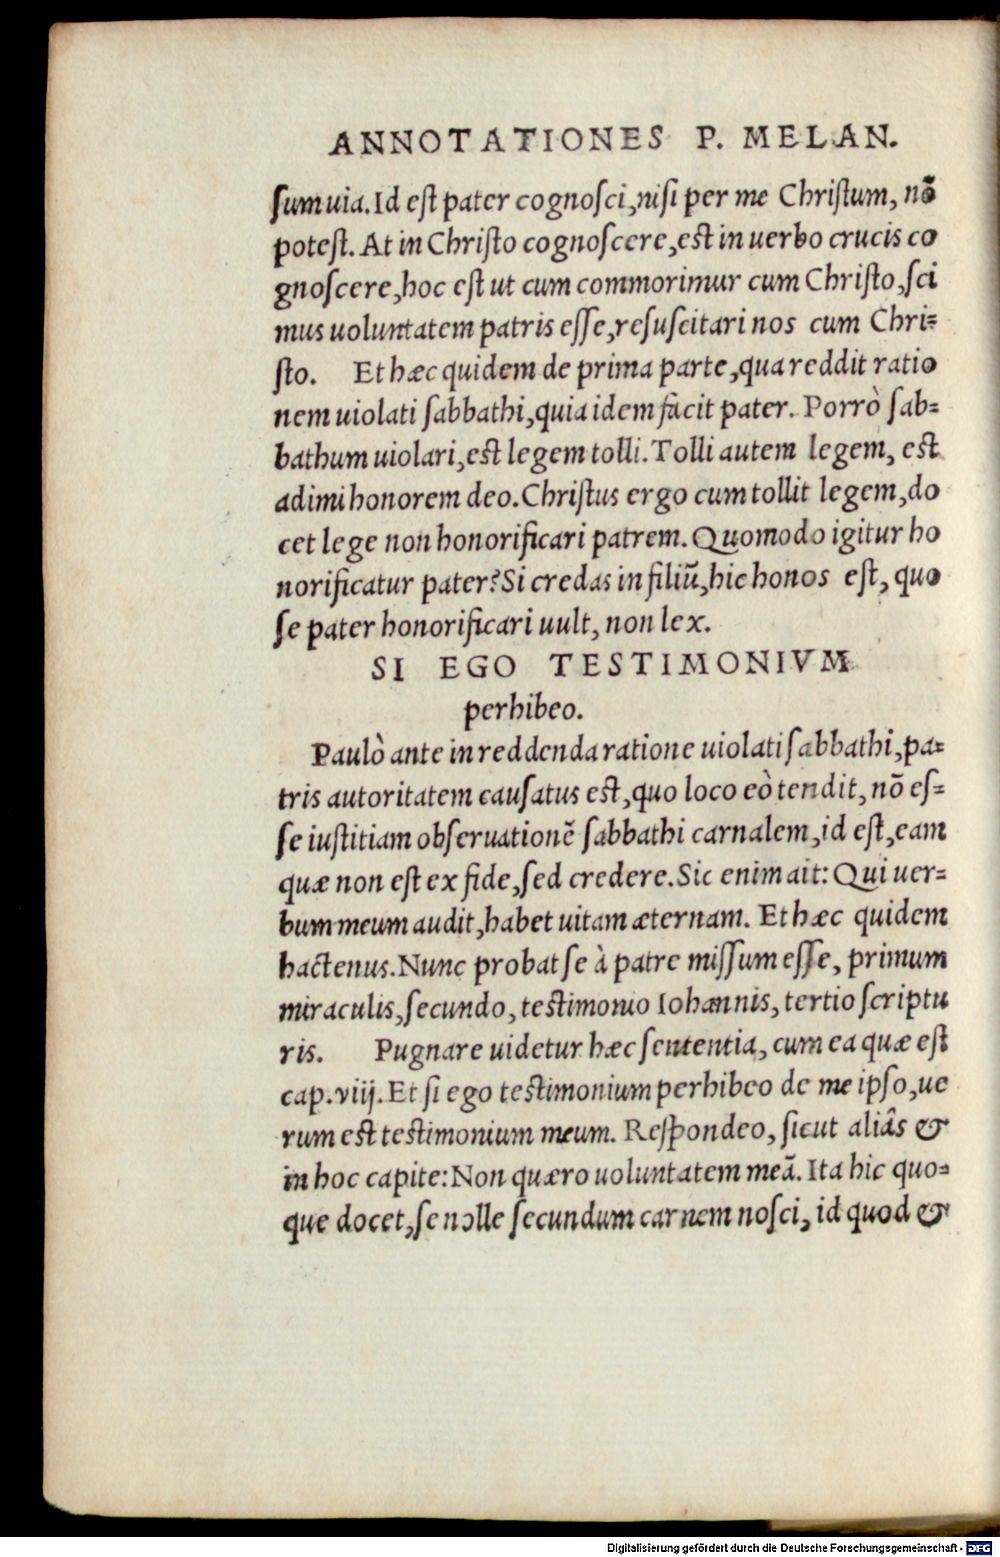 ANNOTATIONES P. MELAN.
ſum uia. Id eſt pater cognoſci, niſi per me Chriſtum, nō
poteſt. At in Chriſto cognoſcere, est in uerbo crucis co
gnoſcere, hoc eſt ut cum commorimur cum Chriſto, ſci
mus uoluntatem patris eſſe, reſuſcitari nos cum Chri=
ſto. Et hæc quidem de prima parte, qua reddit ratio
nem uiolati ſabbathi, quia idem facit pater. Porrò ſab=
bathum uiolari, est legem tolli. Tolli autem legem, est
adimi honorem deo. Chriſtus ergo cum tollit legem, do
cet lege non honorificari patrem. Quomodo igitur ho
norificatur pater? Si credas in filiū, hic honos eſt, quo
ſe pater honorificari uult, non lex.
SI EGO TESTIMONIVM
perhibeo.
Paulò ante in reddenda ratione uiolati ſabbathi, pa=
tris autoritatem cauſatus eſt, quo loco eò tendit, nō eſ=
ſe iustitiam obſeruationē ſabbathi carnalem, id eſt, eam
quæ non eſt ex fide, ſed credere. Sic enim ait: Qui uer=
bum meum audit, habet uitam æternam. Et hæc quidem
hactenus. Nunc probat ſe à patre miſſum eſſe, primum
miraculis, ſecundo, testimonio Iohannis, tertio ſcriptu
ris. Pugnare uidetur hæc ſententia, cum ea quæ eſt
cap. viij. Et ſi ego testimonium perhibeo de me ipſo, ue
rum est testimonium meum. Reſpondeo, ſicut aliâs &
in hoc capite: Non quæro uoluntatem meā. Ita hic quo=
que docet, ſe nolle ſecundum carnem noſci, id quod &
Digitalisierung gefördert durch die Deutsche Forschungsgemeinschaft - DFG